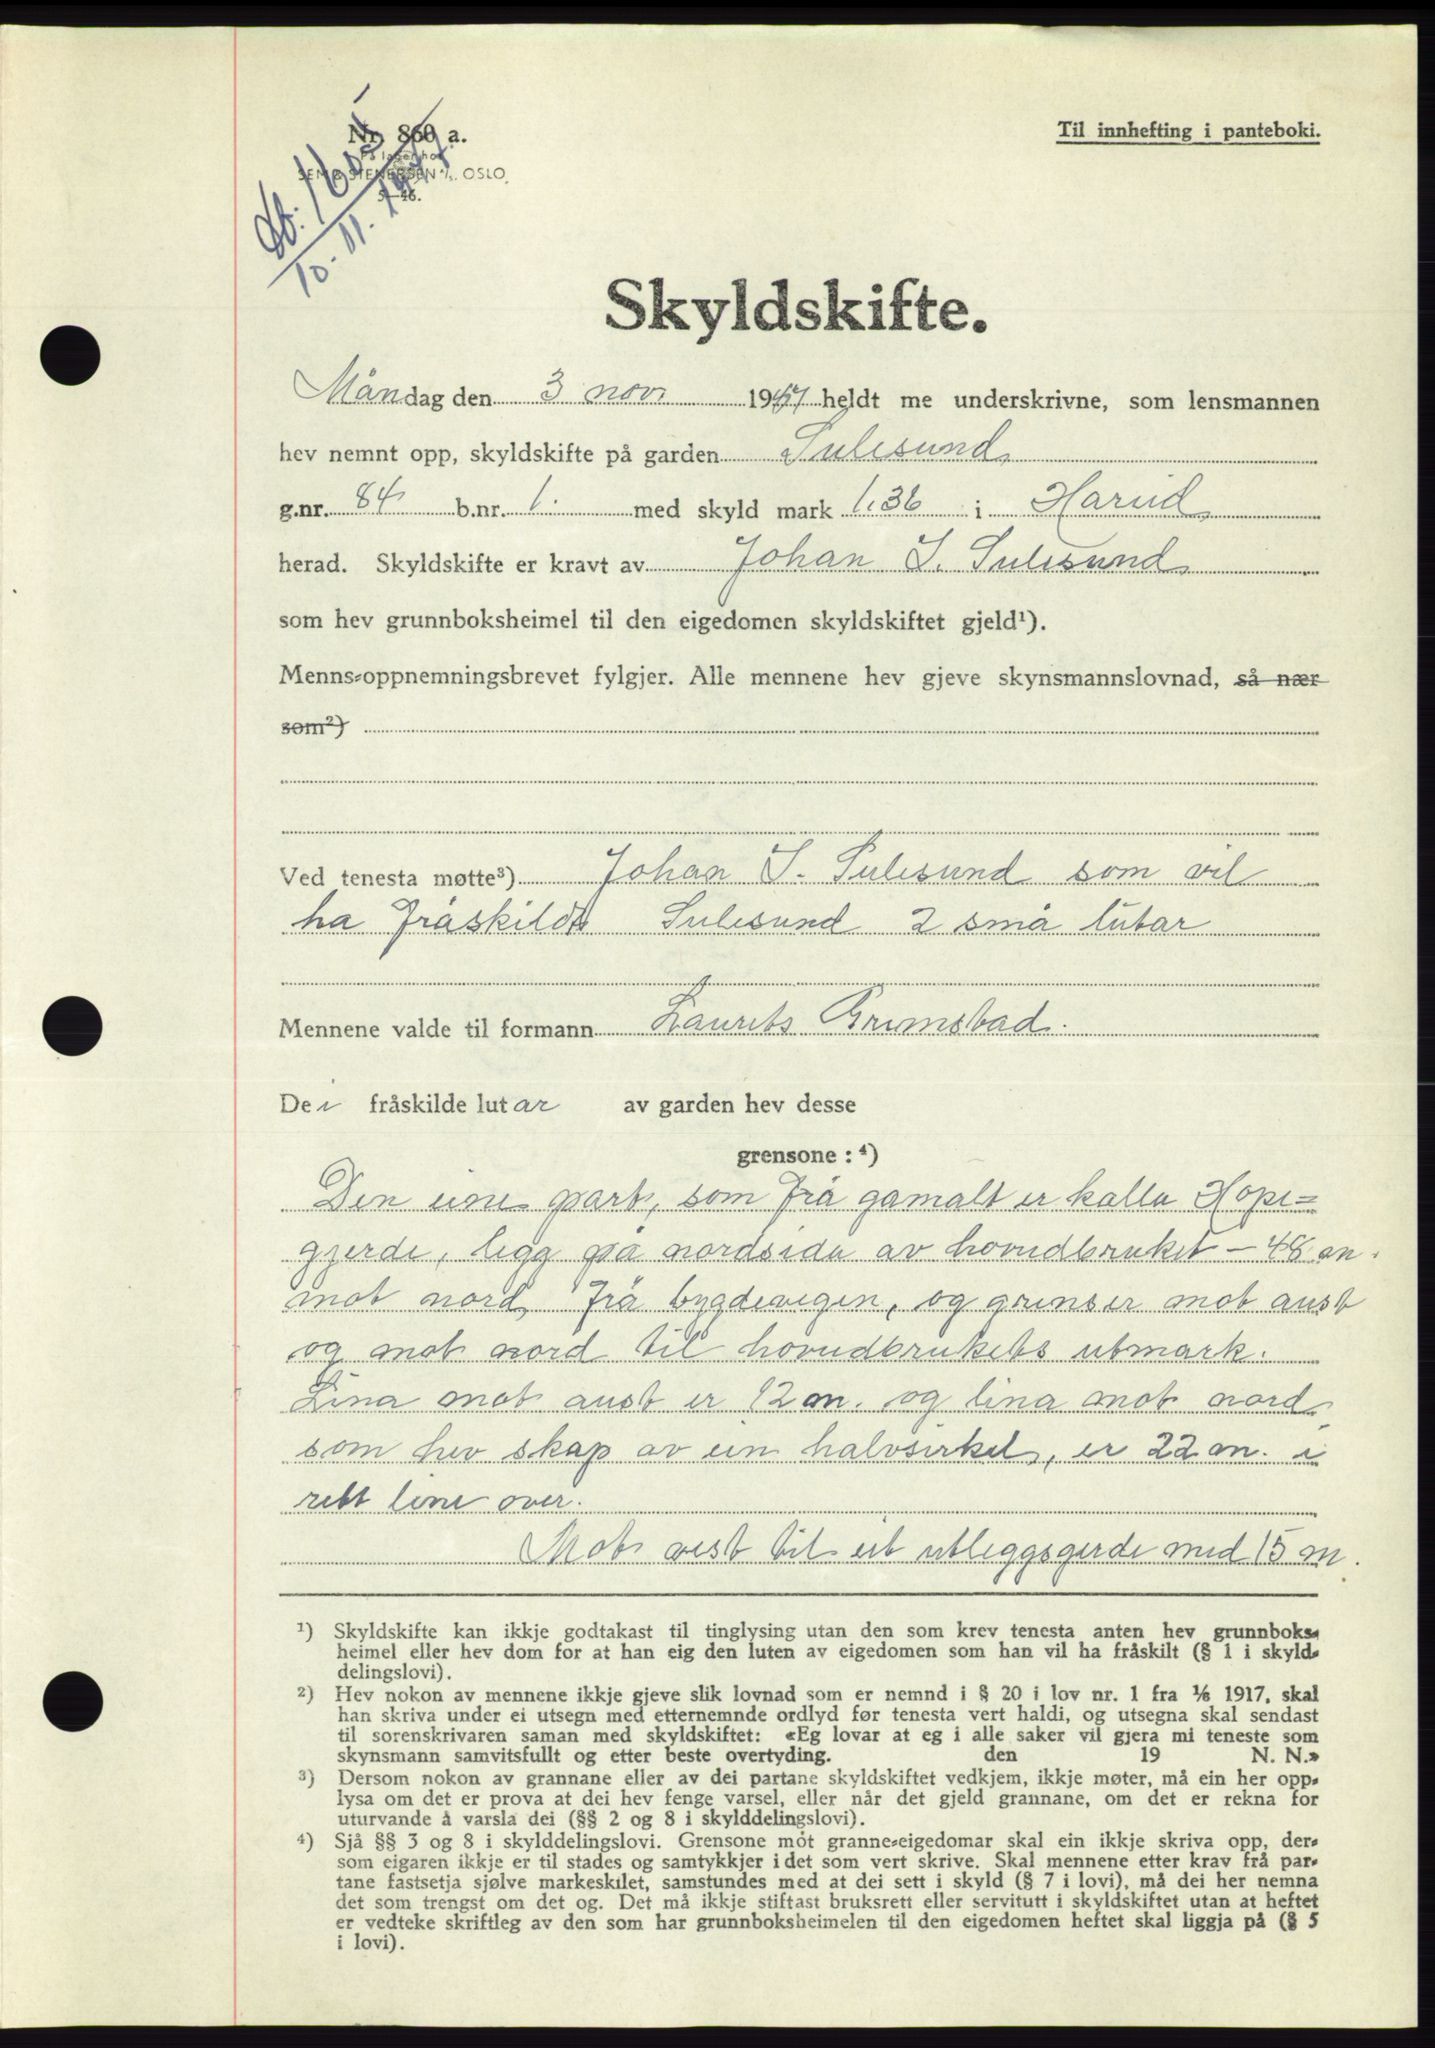 Nr. 860 a.
På lager hos
SEM & STENERSEN A/S, OSLO
5—46.
Til innhefting i panteboki.
Db. 1605
10-11-1947
Skyldskifte.
Måndag den 3 nov. 1947 heldt me underskrivne, som lensmannen
hev nemnt opp, skyldskifte på garden Sulesund
g.nr. 84 b.nr. 1. med skyld mark 1.36 i Hareid
herad. Skyldskifte er kravt av Johan I. Sulesund
som hev grunnboksheimel til den eigedomen skyldskiftet gjeld¹).
Menns-oppnemningsbrevet fylgjer. Alle mennene hev gjeve skynsmannslovnad, så nær
som²)
Ved tenesta møtte³) Johan I. Sulesund som vil
ha fråskildt Sulesund 2 små lutar
Mennene valde til formann Laurits Grimstad.
Dei fråskilde lutar av garden hev desse
grensone : ⁴)
Den eine part, som frå gamalt er kalla Hope-
gjerde, legg på nordsida av hovudbruket – 48 m.
mot nord frå bygdevegen, og grenser mot aust
og mot nord til hovudbrukets utmark.
Lina mot aust er 12 m. og lina mot nord
som hev skap av ein halvsirkel, er 22 m. i
rett line over.
Mot vest til eit utleggsgerde med 15 m.
¹) Skyldskifte kan ikkje godtakast til tinglysing utan den som krev tenesta anten hev grunnboks-
heimel eller hev dom for at han eig den luten av eigedomen som han vil ha fråskilt (§ 1 i skyld-
delingslovi).
²) Hev nokon av mennene ikkje gjeve slik lovnad som er nemnd i § 20 i lov nr. 1 fra ⅙ 1917, skal
han skriva under ei utsegn med etternemnde ordlyd før tenesta vert haldi, og utsegna skal sendast
til sorenskrivaren saman med skyldskiftet: «Eg lovar at eg i alle saker vil gjera mi teneste som
skynsmann samvitsfullt og etter beste overtyding. den 19 N. N.»
³) Dersom nokon av grannane eller av dei partane skyldskiftet vedkjem, ikkje møter, må ein her opp-
lysa om det er prova at dei hev fenge varsel, eller når det gjeld grannane, om det er rekna for
uturvande å varsla dei (§§ 2 og 8 i skylddelingslovi).
⁴) Sjå §§ 3 og 8 i skylddelingslovi. Grensone mot granne-eigedomar skal ein ikkje skriva opp, der-
som eigaren ikkje er til stades og samtykkjer i det som vert skrive. Skal mennene etter krav frå par-
tane fastsetja sjølve markeskilet, samstundes med at dei sett i skyld (§ 7 i lovi), må dei her nemna
det som trengst om det og. Det må ikkje stiftast bruksrett eller servitutt i skyldskiftet utan at heftet
er vedteke skriftleg av den som har grunnboksheimelen til den eigedomen heftet skal liggja på (§ 5
i lovi).